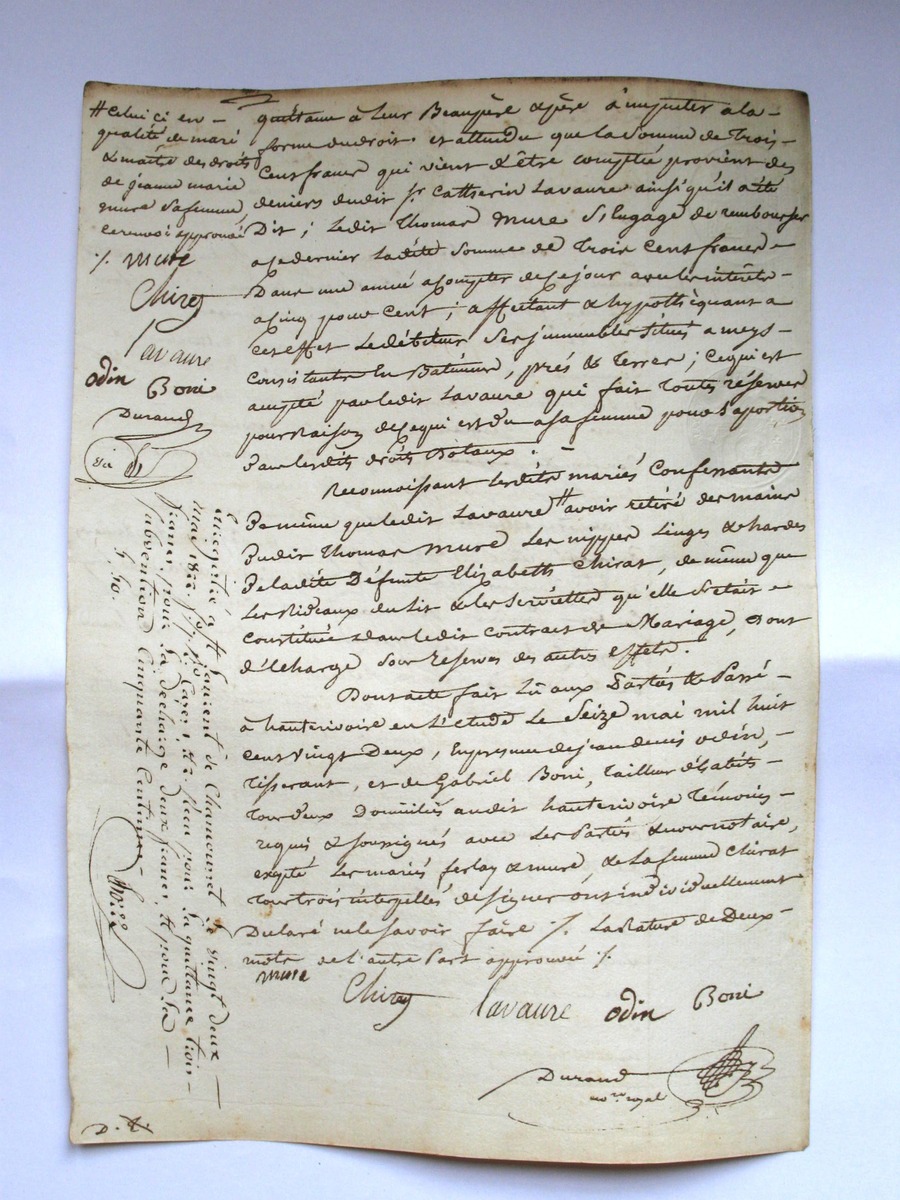 # Celui ci en
qualité de mari
& maitre des droits
de jeanne marie
mure sa femme
ce renvoi approuvé
./. mure
Chirat
Lavaure
odin Boni
Durand
quittance à leur Beaupère & père à imputer a la
forme du droit. et attendu que la somme de Trois
Cent francs qui vient d'être comptée provient des
deniers dudit sr. Catherin Lavaure ainsi qu'il a été
Dit; Ledit Thomas mure s'Engage de rembourser
a ce dernier Ladite somme de Trois Cent francs
Dans une année a Compter de ce jour avec les intérêts
a Cinq pour Cent; affectant & hypothéquant a
cet effet Le débiteur Ses immeubles Situés a meys
Consistants En Batiments, prés & Terres; ce qui est
accepté par ledit Lavaure qui fait toutes réserves
pour raison de ce qui est du a sa femme pour sa portion
Dans lesdits droits Dotaux.
Reconnoissant lesdits mariés Confessants
De même que ledit Lavaure # avoir retiré des mains
Dudit Thomas mure Les nippes Linges & hardes
De ladite Défunte Elizabeth Chirat, de même que
Les Rideaux du Lit & les Serviettes qu'elle s'etait
Constituée dans ledit contrat de Mariage, Dont
décharge sous reserves des autres effets.
Dont acte fait Lû aux Parties & Passé
à hauterivoire en L'étude Le Seize mai mil huit
cent Vingt Deux, En présence de jean denis odin,
Tisserant, et de Gabriel Boni, Tailleur d'habits
Tous deux Domiciliés audit hauterivoire Témoins
requis & soussignés avec Les Parties & nous notaire,
excepté Les mariés ferlay & mure & La femme Chirat
Tous trois interpellés de signer ont individuellement
Déclaré ne le savoir faire ./. La Rature de Deux
mots de l'autre Part approuvée ./.
mure
Chirat Lavaure odin Boni
Durand
nore royal
Enregistré à St Laurent de Chamousset le vingt deux
mai 1822 francs pour la quittance trois
francs, pour la décharge deux francs, & pour la
subvention Cinquante Centimes
5. 50.
D. &.